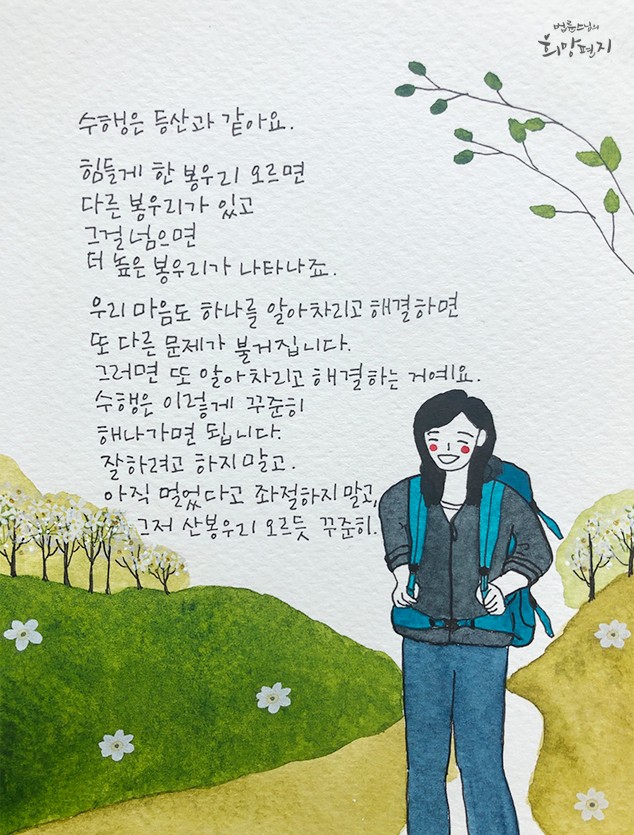 법륜스님의
희망편지
수행은 등산과 같아요.
힘들게 한 봉우리 오르면
다른 봉우리가 있고
그걸 넘으면
더 높은 봉우리가 나타나죠.
우리 마음도 하나를 알아차리고 해결하면
또 다른 문제가 불거집니다.
그러면 또 알아차리고 해결하는 거예요.
수행은 이렇게 꾸준히
해나가면 됩니다.
잘하려고 하지 말고.
아직 멀었다고 좌절하지 말고,
그저 산봉우리 오르듯 꾸준히.